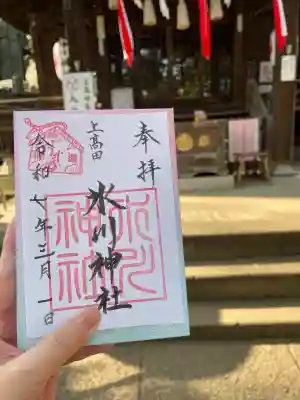 奉拝
上高田
氷川神社
令和七年三月一日
氷川神社